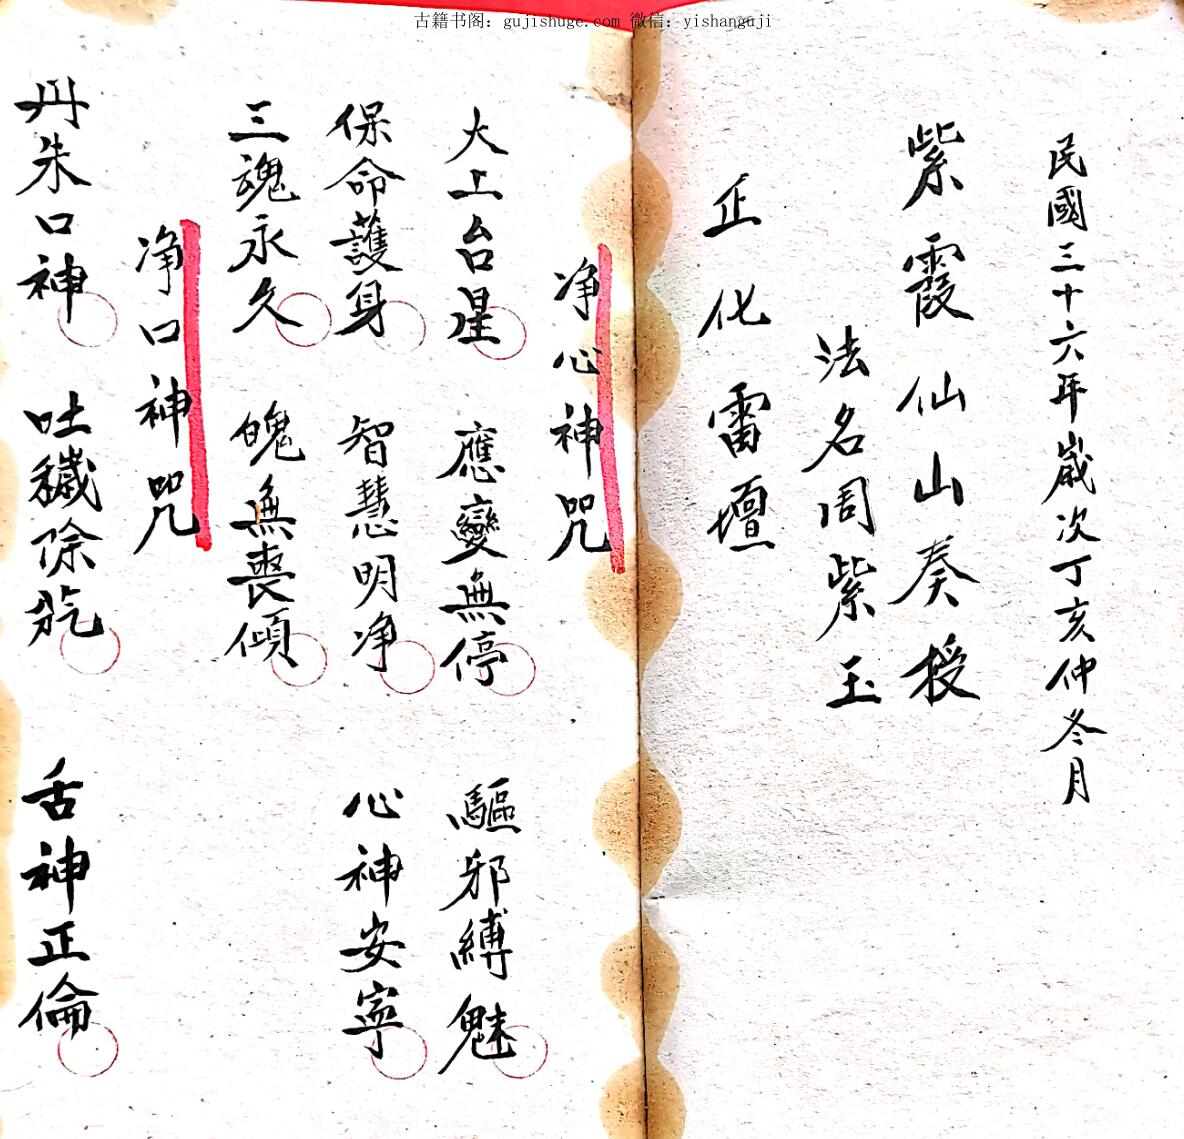 古籍书阁：gujishuge.com 微信：yishanguji
民國三十六年嵗次丁亥仲冬月
紫霞仙山奏授
法名周紫玉
正化雷壇
净心神咒
大上台星 應變無停 驅邪縛魅
保命護身 智慧明净 心神安寧
三魂永久 魄無喪傾
净口神咒
丹朱口神 吐穢除氛 舌神正倫